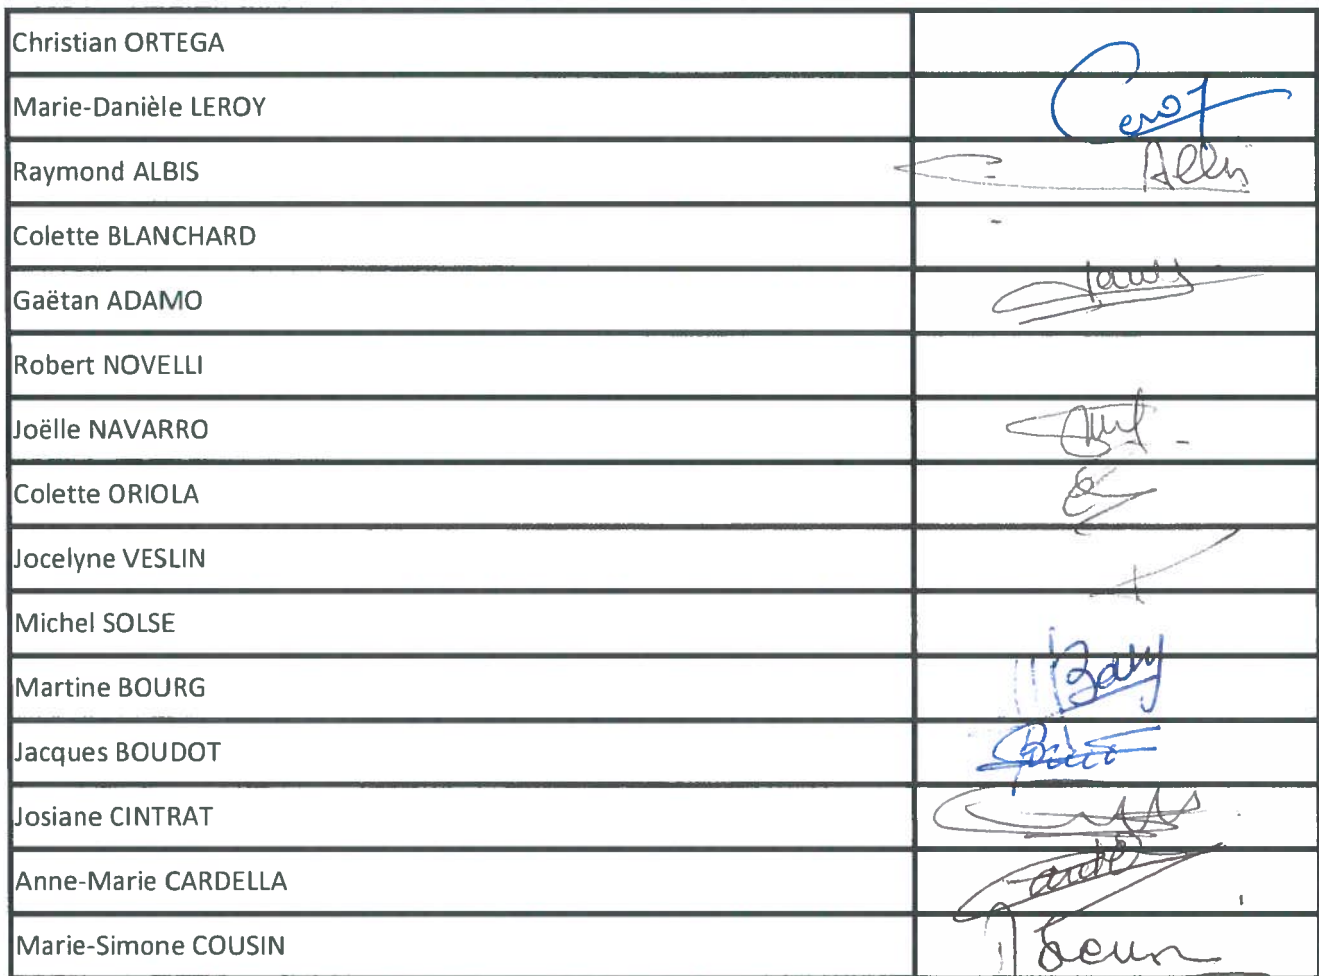 Christian ORTEGA
Marie-Danièle LEROY
Raymond ALBIS
Colette BLANCHARD
Gaëtan ADAMO
Robert NOVELLI
Joëlle NAVARRO
Colette ORIOLA
Jocelyne VESLIN
Michel SOLSE
Martine BOURG
Jacques BOUDOT
Josiane CINTRAT
Anne-Marie CARDELLA
Marie-Simone COUSIN